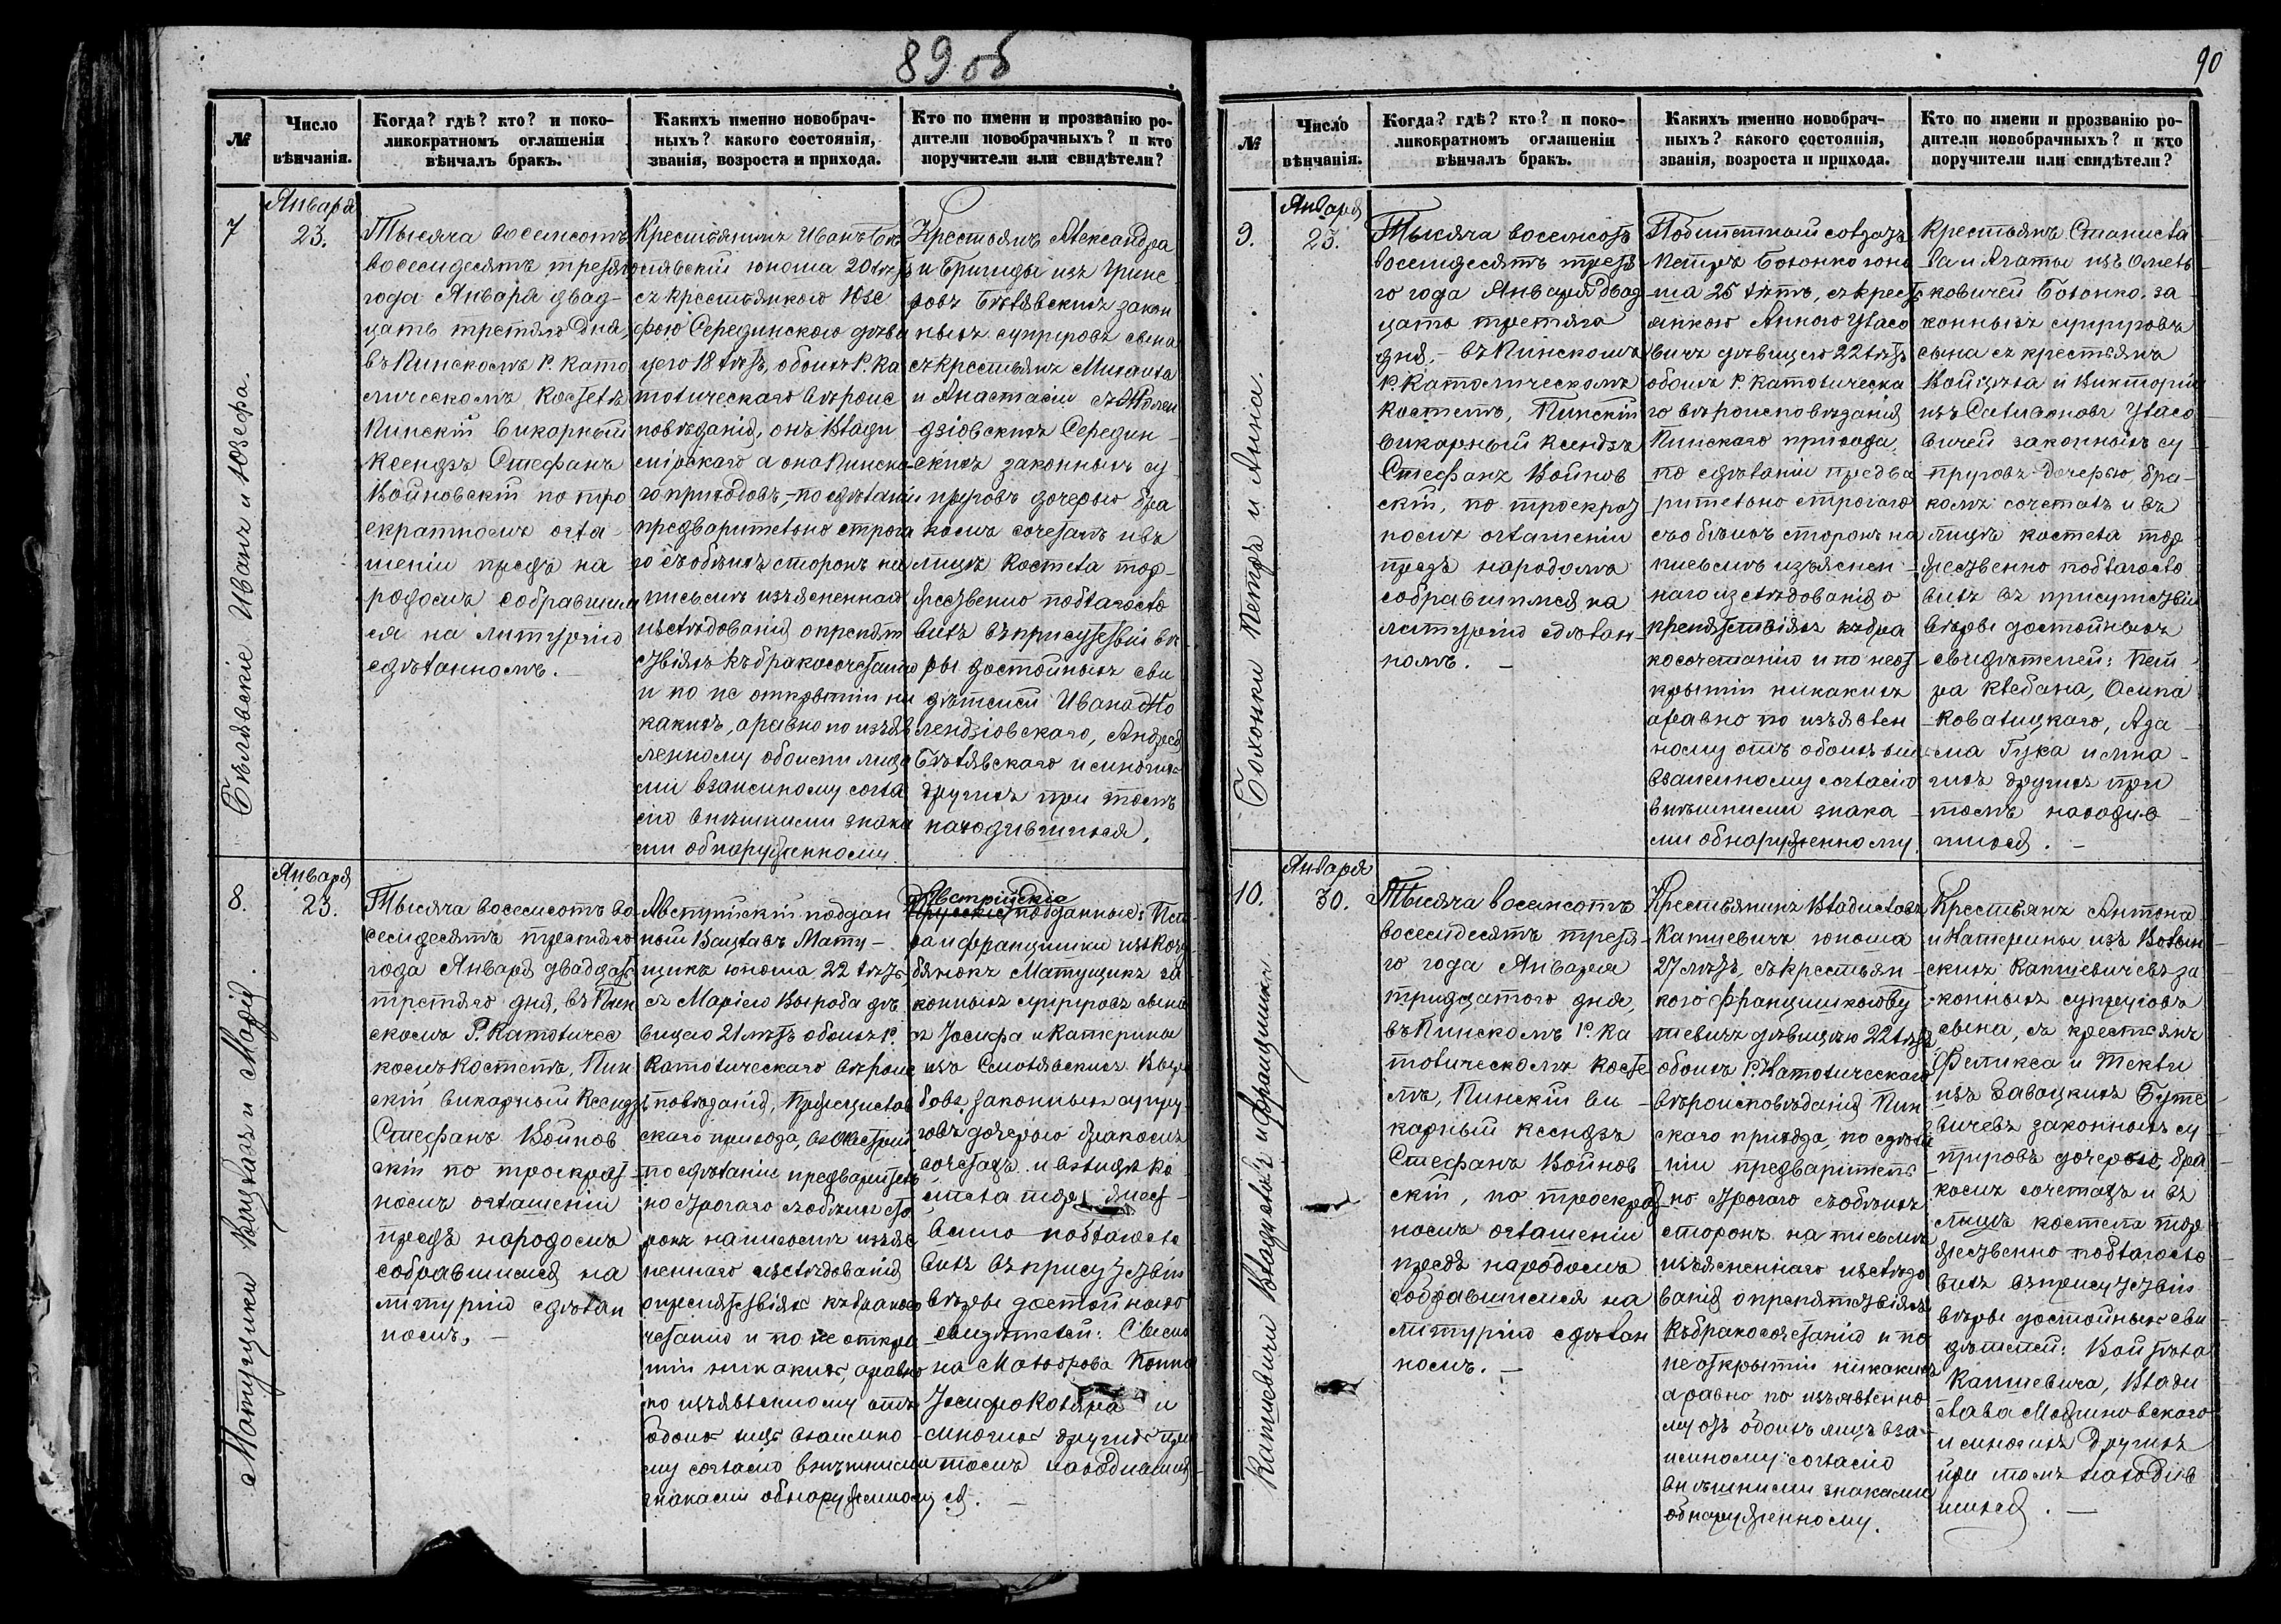 89 об
№
Число
вѣнчанія.
Когда? гдѣ? кто? и поко-
ликократномъ оглашеніи
вѣнчалъ бракъ.
Какихъ именно новобрач-
ныхъ? какого состоянія,
званія, возроста и прихода.
Кто по имени и прозванію ро-
дители новобрачныхъ? и кто
поручители или свидѣтели?
7
Бѣлявскіе Иванъ и Юзефа.
Января
23.
Тысяча восемсотъ
восемдесятъ третяго
года Января двад-
цать третяго дня,
въ Пинскомъ Р. Като
лическомъ Костелѣ
Пинскій Викарный
Ксендзъ Стефанъ
Войновскій по тро
екратномъ огла-
шеніи предъ на
родомъ собравшим
ся на литургію
сдѣланномъ.
Крестьянинъ Иванъ Бѣ
лявскій юноша 20 лѣтъ
съ крестьянкою Юзе
фою Серединскою дѣви
цею 18 лѣтъ, обоихъ Р. Ка
толическаго вѣроис
повѣданія, онъ Влади
мірскаго а она Пинска
го приходовъ, по сдѣланіи
предварительно строга
го съ обѣихъ сторонъ на
письмѣ изъясненнаго
изслѣдованія о препят
ствіяхъ къ бракосочетанію
и по не открытіи ни
какихъ, а равно по изъяв
ленному обоими лица
ми взаимному согла
сію внѣшними знака
ми обнаруженному
Крестьянъ Александра
и Бригиды изъ Грине
ровъ Бѣлявскихъ закон
ныхъ супруговъ сына
съ крестьянъ Михаила
и Анастасіи съ Жолен
дзіовскихъ Середин-
скихъ законныхъ су
пруговъ дочерью бра
комъ сочеталъ и въ
лицѣ Костела тор-
жественно поблагосло
вилъ въ присутствіи вѣ-
ры достойныхъ сви
дѣтелей Ивана Жо
лендзіовскаго, Андрея
Бѣлявскаго и многихъ
другихъ при томъ
находившихся.
8.
Матущики Вацлавъ и Марія.
Января
23.
Тысяча восемсотъ во
семдесятъ третяго
года Января двадцать
третяго дня, въ Пин
скомъ Р. Католичес
комъ Костелѣ, Пин
скій викарный Ксендзъ
Стефанъ Войнов
скій по троекрат-
номъ оглашеніи
предъ народомъ
собравшимся на
литургію сдѣлан
номъ,
Австрійскій поддан
ный Вацлавъ Мату-
щикъ юноша 22 лѣтъ,
съ Маріею Выроба дѣ
вицею 21 лѣтъ обоихъ Р.
Католическаго вѣроис
повѣданія,
скаго прихода, въ Австріи
по сдѣланіи предваритель
но строгаго съ обѣихъ сто
ронъ на письмѣ изъяс
неннаго изслѣдованія
о препятствіяхъ къ бракосо
четанію и по не откры
тіи никакихъ, а равно
по изъявленному отъ
обоихъ лицъ взаимно
му согласію внѣшними
знаками обнаруженному
Австрійскіе
подданные:
ра и Францишки изъ
Матущикъ за
конныхъ супруговъ сына
съ Іосифа и Катерины
изъ Смолявскихъ Выро
бовъ законныхъ супру-
говъ дочерью бракомъ
сочеталъ и въ лицѣ Ко-
стела торжест-
венно поблагосло
вилъ въ присутствіи
вѣры достойныхъ
свидѣтелей:
Іосифа Коляра и
многихъ другихъ при
томъ находивших-
ся.
90
№
Число
вѣнчанія.
Когда? гдѣ? кто? и поко-
ликократномъ оглашеніи
вѣнчалъ бракъ.
Какихъ именно новобрач-
ныхъ? какого состоянія,
званія, возроста и прихода.
Кто по имени и прозванію ро-
дители новобрачныхъ? и кто
поручители или свидѣтели?
9.
Болонки Петръ и Анна.
Января
23.
Тысяча восемсотъ
восемдесятъ третя
го года Января двад
цать третяго
дня. въ Пинскомъ
Р. Католическомъ
Костелѣ, Пинскій
викарный ксендзъ
Стефанъ Войнов
скій, по троекрат
номъ оглашеніи
предъ народомъ
собравшимся на
литургію сдѣлан-
номъ.
солдатъ
Петръ Болонко юно
ша 25 лѣтъ, съ кресть
янкою Анною Уласо
вичъ дѣвицею 22 лѣтъ
обоихъ Р. Католическа
го вѣроисповѣданія
Пинскаго прихода,
по сдѣланіи предва
рительно строгаго
съ обѣихъ сторонъ на
письмѣ изъяснен-
наго изслѣдованія о
препятствіяхъ къ бра
косочетанію и по неот
крытіи никакихъ
а равно по изъявлен
ному отъ обоихъ
взаимному согласію
внѣшними знака-
ми обнаруженному.
Крестьянъ Станисла
ва и Агаты изъ Омель
ковичей Болонко, за
конныхъ супруговъ
сына съ крестьянъ
Войцѣха и Викторіи
изъ Уласо
вичей законныхъ су
пруговъ дочерью, бра-
комъ сочеталъ и въ
лицѣ костела тор
жественно поблагосло
вилъ въ присутствіи
вѣры достойныхъ
свидѣтелей: Пет
ра Клебана, Осипа
Ковалицкаго, Ада
ма Гука и мно-
гихъ другихъ при
томъ находив
шихся.
10.
Капшевичи Владиславъ и Францишка.
Января
30.
Тысяча восемсотъ
восемдесятъ третя-
го года Января
тридцатого дня,
въ Пинскомъ Р. Ка
толическомъ Косте
лѣ, Пинскій ви-
карный ксендзъ
Стефанъ Войнов
скій, по троекрат
номъ оглашеніи
предъ народомъ
собравшимся на
литургію сдѣлан
номъ.
Крестьянинъ Владиславъ
Капшевичъ юноша
27 лѣтъ, съ крестьян-
кою Францишкою Бу
тевичъ дѣвицею 22 лѣтъ
обоихъ Р. Католическаго
вѣроисповѣданія Пин
скаго прихода, по сдѣла
ніи предваритель
но строгаго съ обѣихъ
сторонъ на письмѣ
изъясненнаго изслѣдо
ванія о препятствіяхъ
къ бракосочетанію и по
не открытіи никакихъ
а равно по изъявленно
му отъ обоихъ лицъ вза-
имному согласію
внѣшними знаками
обнаруженному.
Крестьянъ Антона
и Катерины изъ Волын
скихъ Капшевичевъ за
конныхъ супруговъ
сына, съ крестьянъ
Феликса и Теклі
изъ Завацкихъ Буте
вичевъ законныхъ су
пруговъ дочерью, бра
комъ сочеталъ и въ
лицѣ костела тор
жественно поблагосло
вилъ въ присутствіи
вѣры достойныхъ сви
дѣтелей: Войцѣха
Капшевича, Влади
слава Малиновскаго
и многихъ другихъ
при томъ находив
шихся.